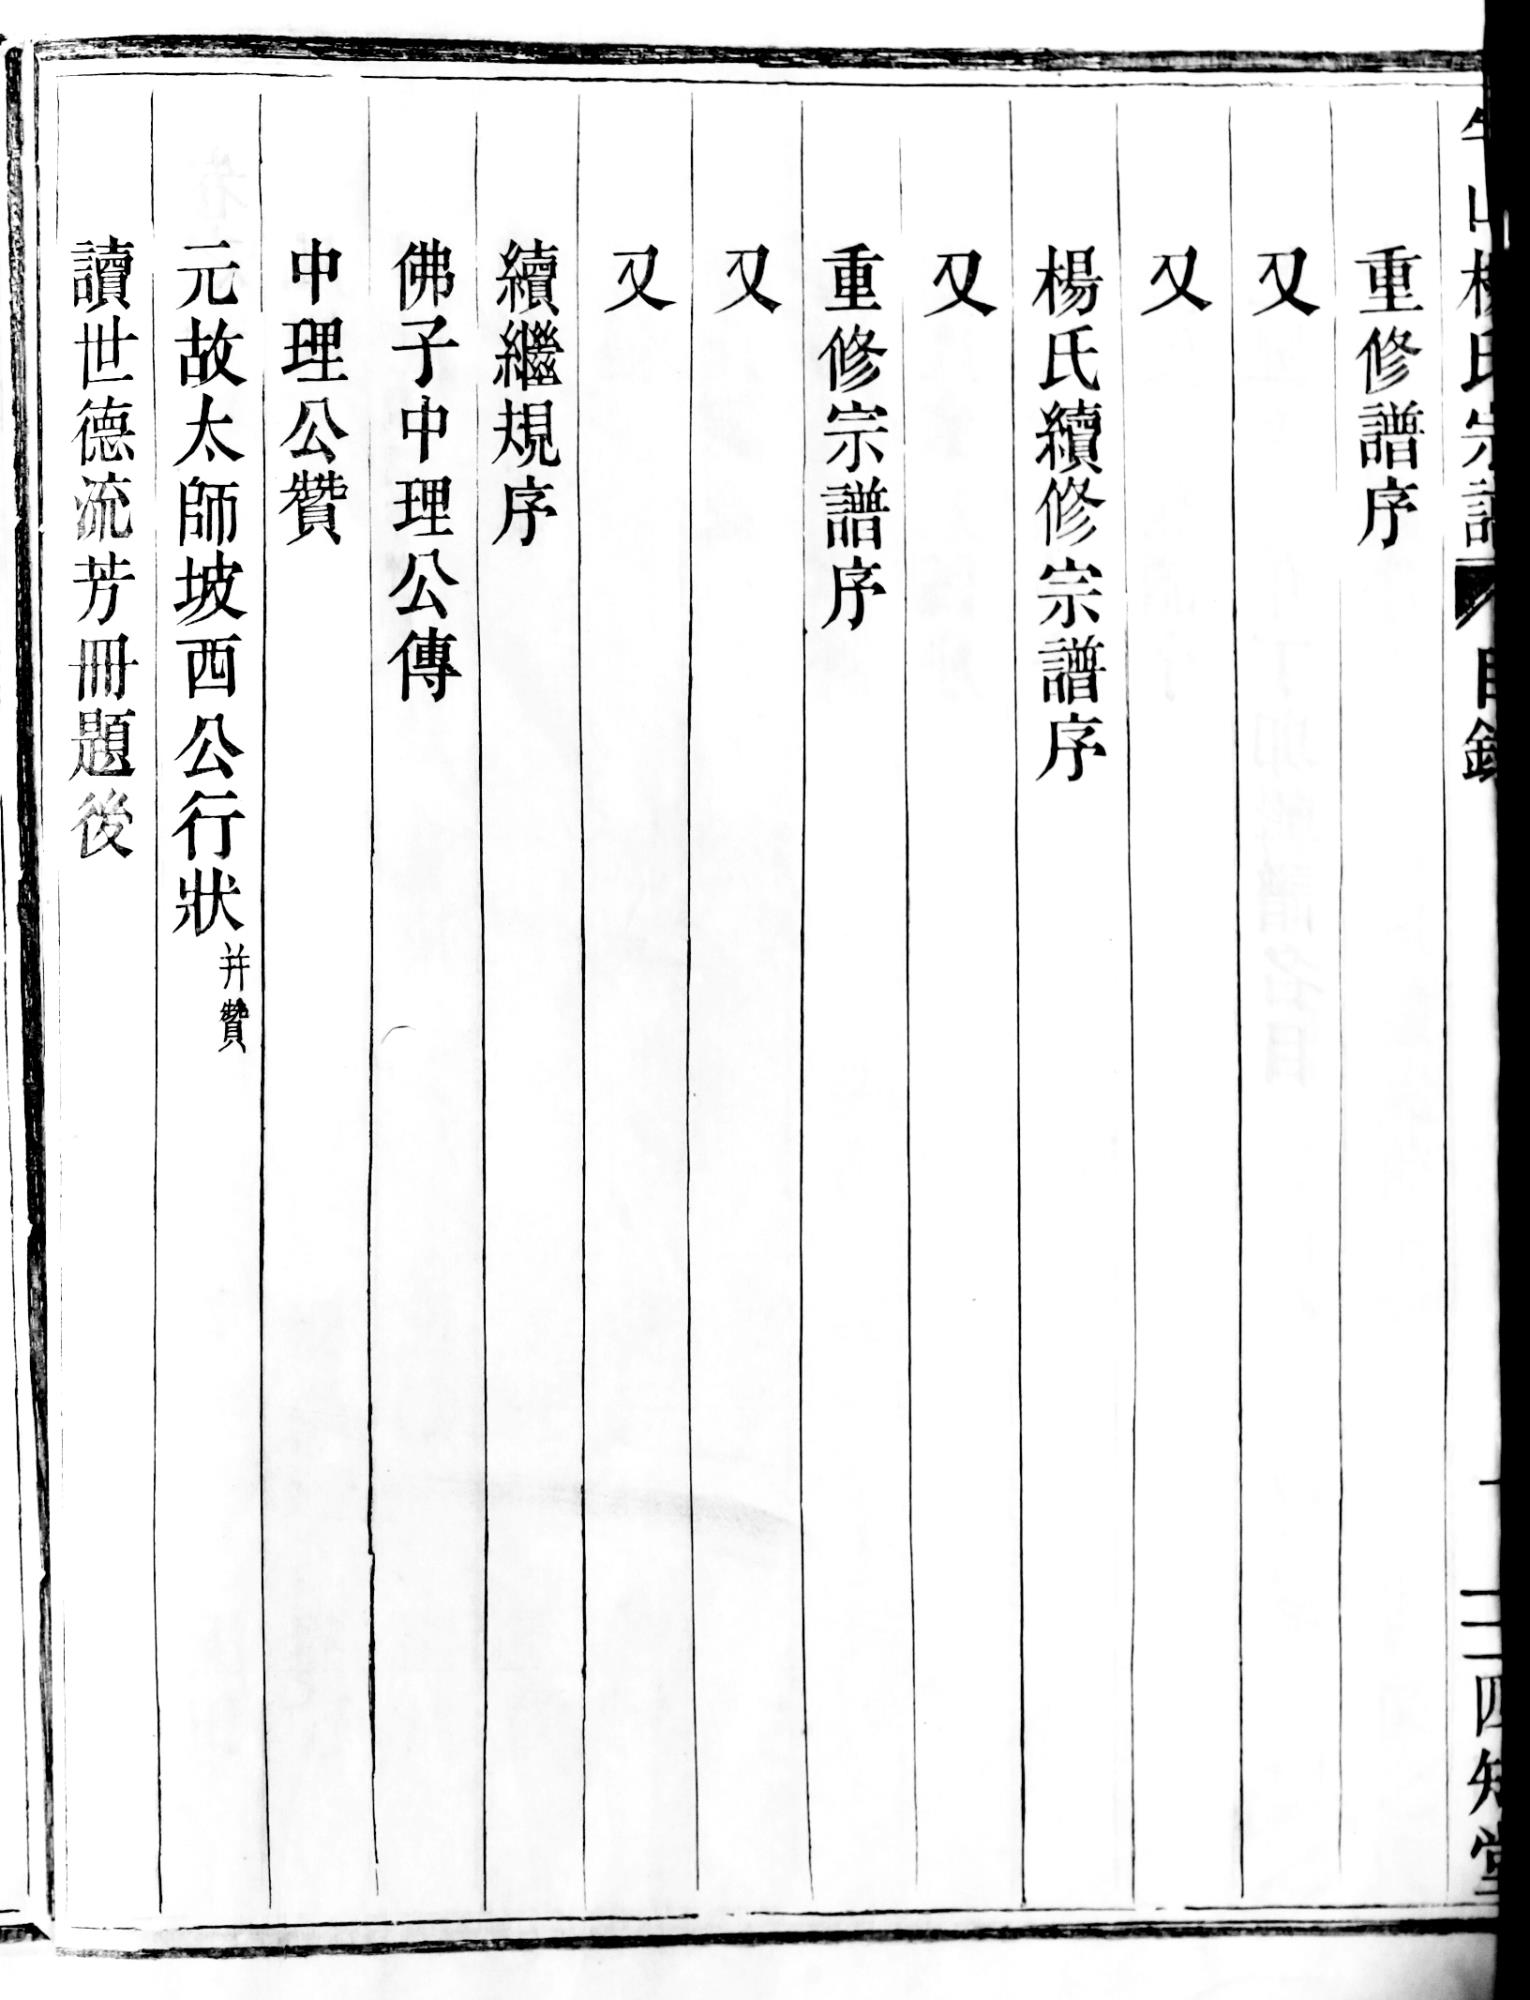 山楊氏宗譜 目錄 二 四知堂
重修譜序
又
又
楊氏續修宗譜序
又
重修宗譜序
又
又
續繼規序
佛子中理公傳
中理公贊
元故太師坡西公行狀 并贊
讀世德流芳冊題後